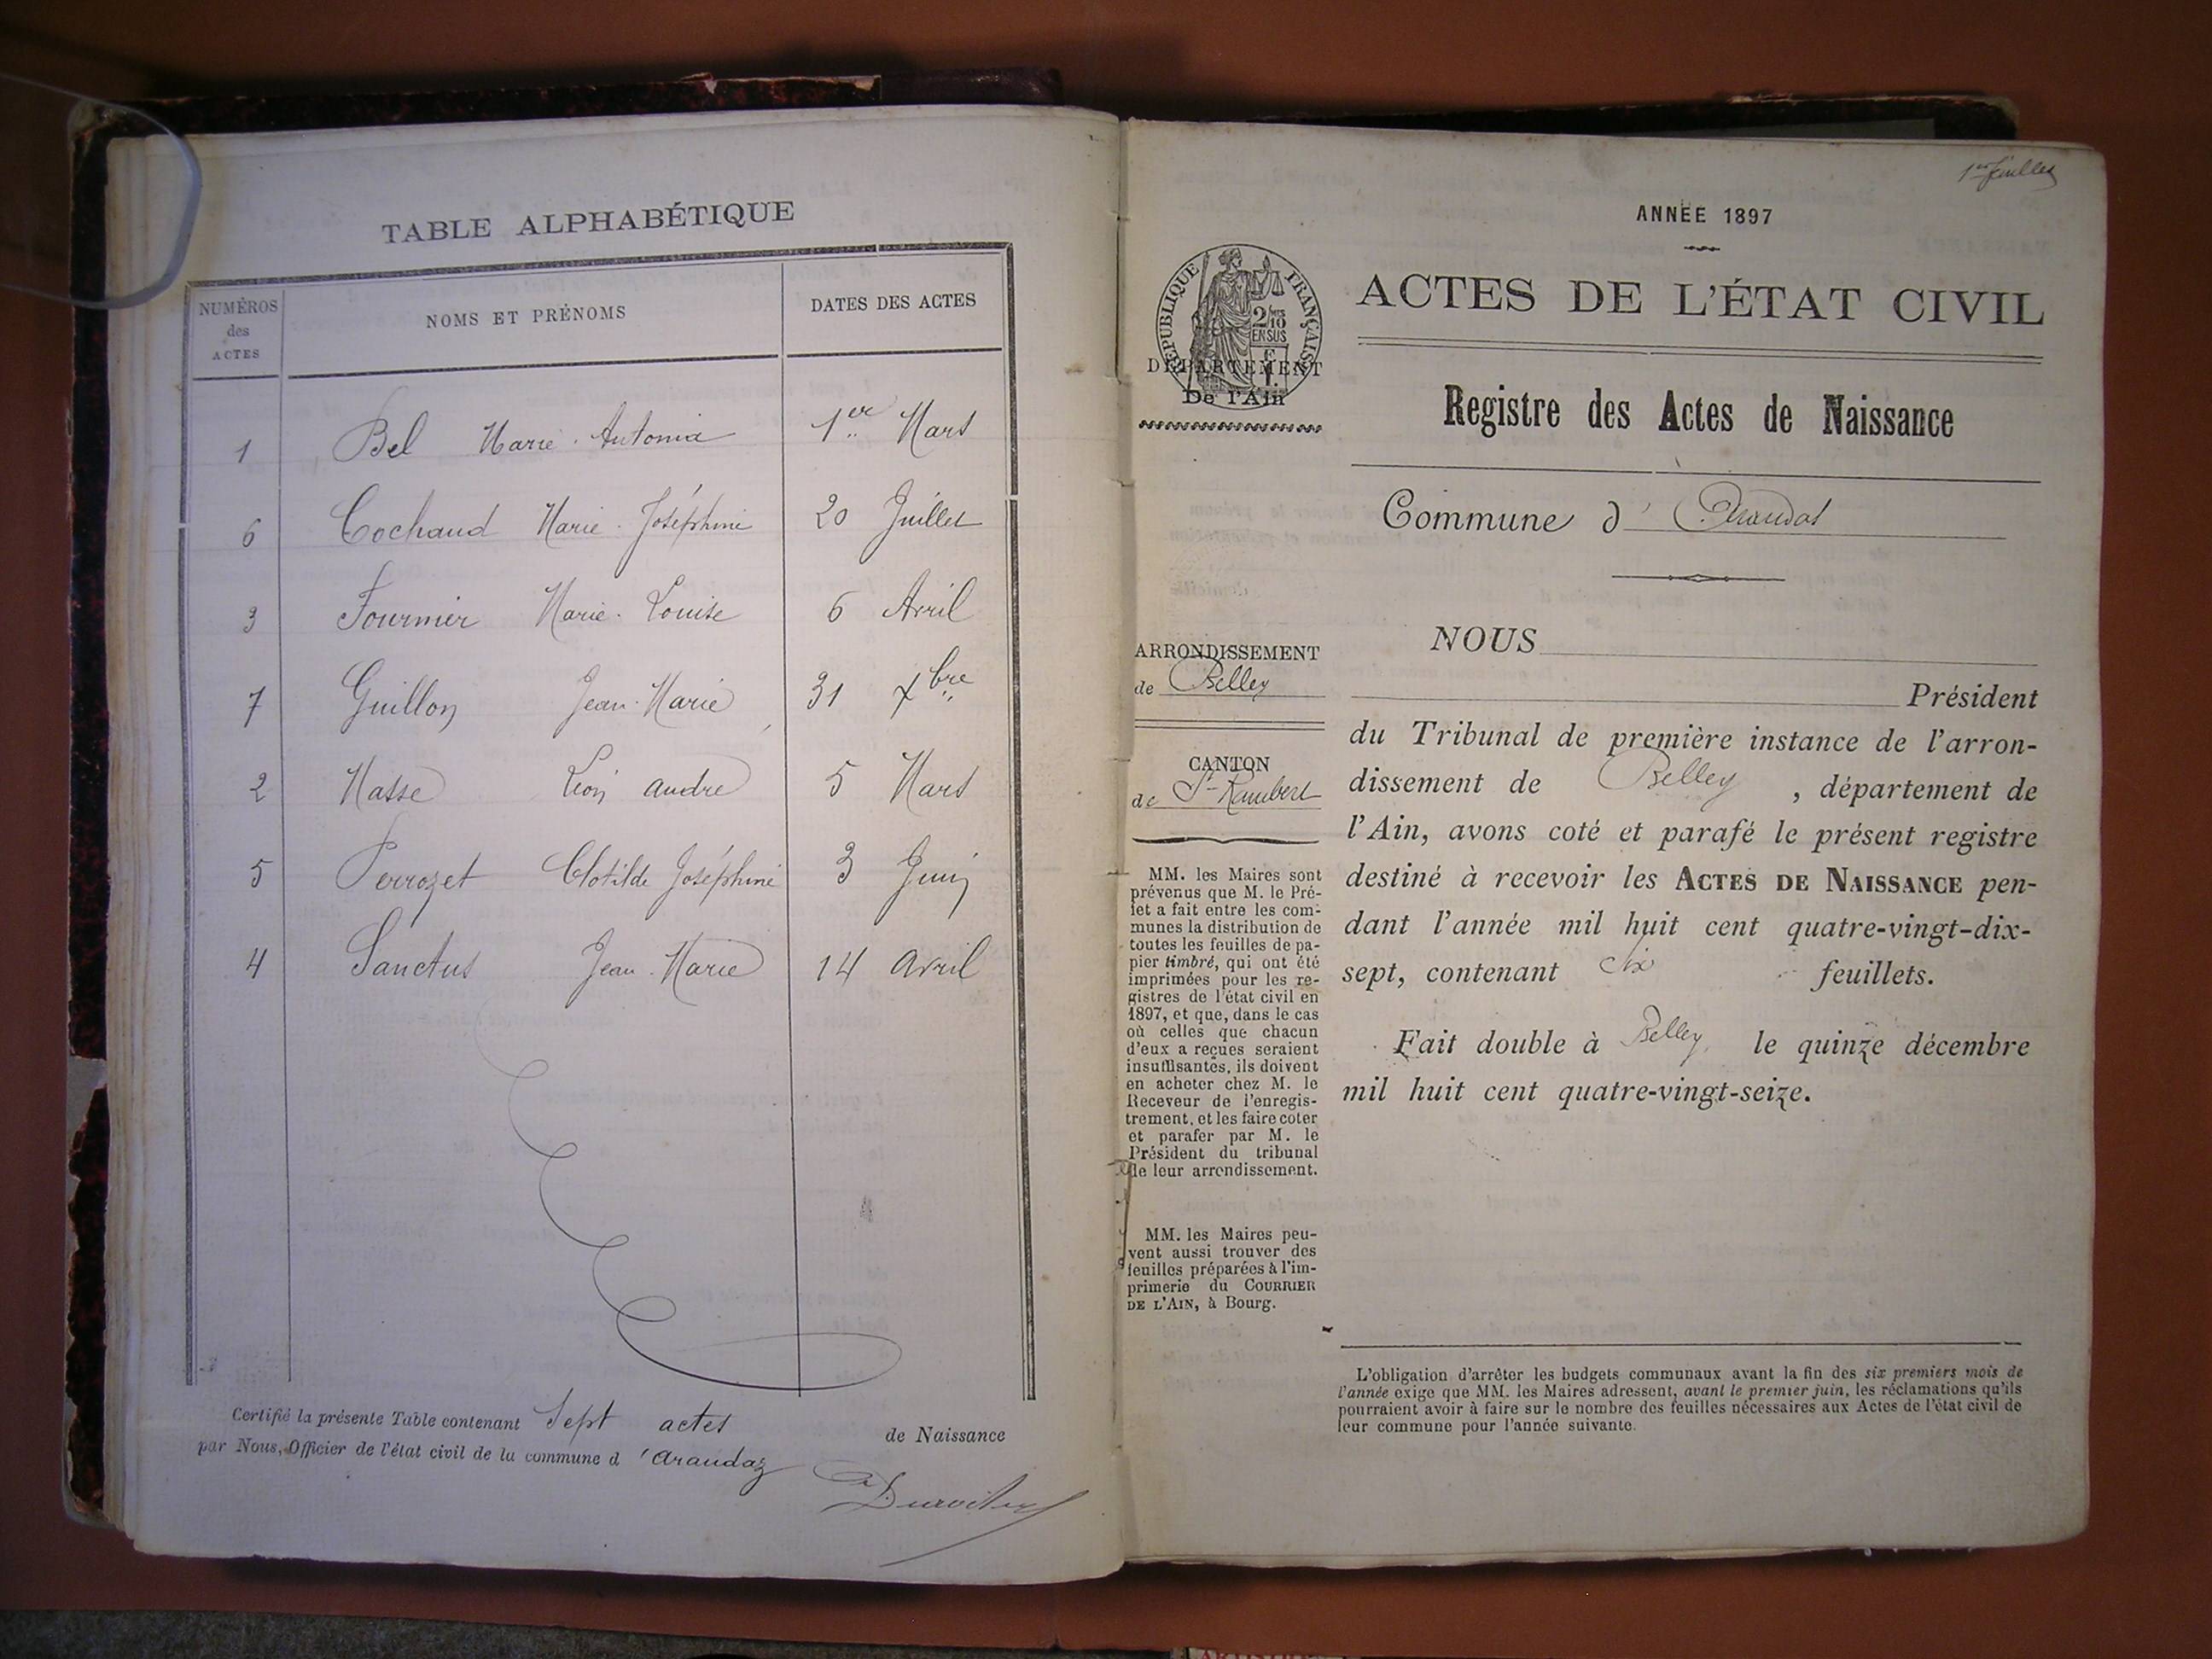 TABLE ALPHABÉTIQUE
NUMÉROS
des
ACTES
NOMS ET PRÉNOMS
DATES DES ACTES
1 Bel Marie-Antonia 1er Mars
6 Cochaud Marie-Joséphine 20 Juillet
3 Fournier Marie-Louise 6 Avril
7 Guillon Jean-Marie 31 Xbre
2 Masse Léon André 5 Mars
5 Perrozet Clotilde Joséphine 3 Juin
4 Sanctus Jean-Marie 14 Avril
Certifié la présente Table contenant Sept actes de Naissance
par Nous, Officier de l'état civil de la commune d'Arandaz
1er feuillet
ANNÉE 1897
ACTES DE L'ÉTAT CIVIL
RÉPUBLIQUE FRANÇAISE
2/10
EN SUS
DÉPARTEMENT
De l'Ain
Registre des Actes de Naissance
Commune d'Arandas
ARRONDISSEMENT
de Belley
CANTON
de St-Rambert
MM. les Maires sont
prévenus que M. le Pré-
fet a fait entre les com-
munes la distribution de
toutes les feuilles de pa-
pier timbré, qui ont été
imprimées pour les re-
gistres de l'état civil en
1897, et que, dans le cas
où celles que chacun
d'eux a reçues seraient
insuffisantes, ils doivent
en acheter chez M. le
Receveur de l'enregis-
trement, et les faire coter
et parafer par M. le
Président du tribunal
de leur arrondissement.
MM. les Maires peu-
vent aussi trouver des
feuilles préparées à l'im-
primerie du COURRIER
DE L'AIN, à Bourg.
NOUS
Président
du Tribunal de première instance de l'arron-
dissement de Belley, département de
l'Ain, avons coté et parafé le présent registre
destiné à recevoir les ACTES DE NAISSANCE pen-
dant l'année mil huit cent quatre-vingt-dix-
sept, contenant six feuillets.
Fait double à Belley, le quinze décembre
mil huit cent quatre-vingt-seize.
L'obligation d'arrêter les budgets communaux avant la fin des six premiers mois de
l'année exige que MM. les Maires adressent, avant le premier juin, les réclamations qu'ils
pourraient avoir à faire sur le nombre des feuilles nécessaires aux Actes de l'état civil de
leur commune pour l'année suivante.